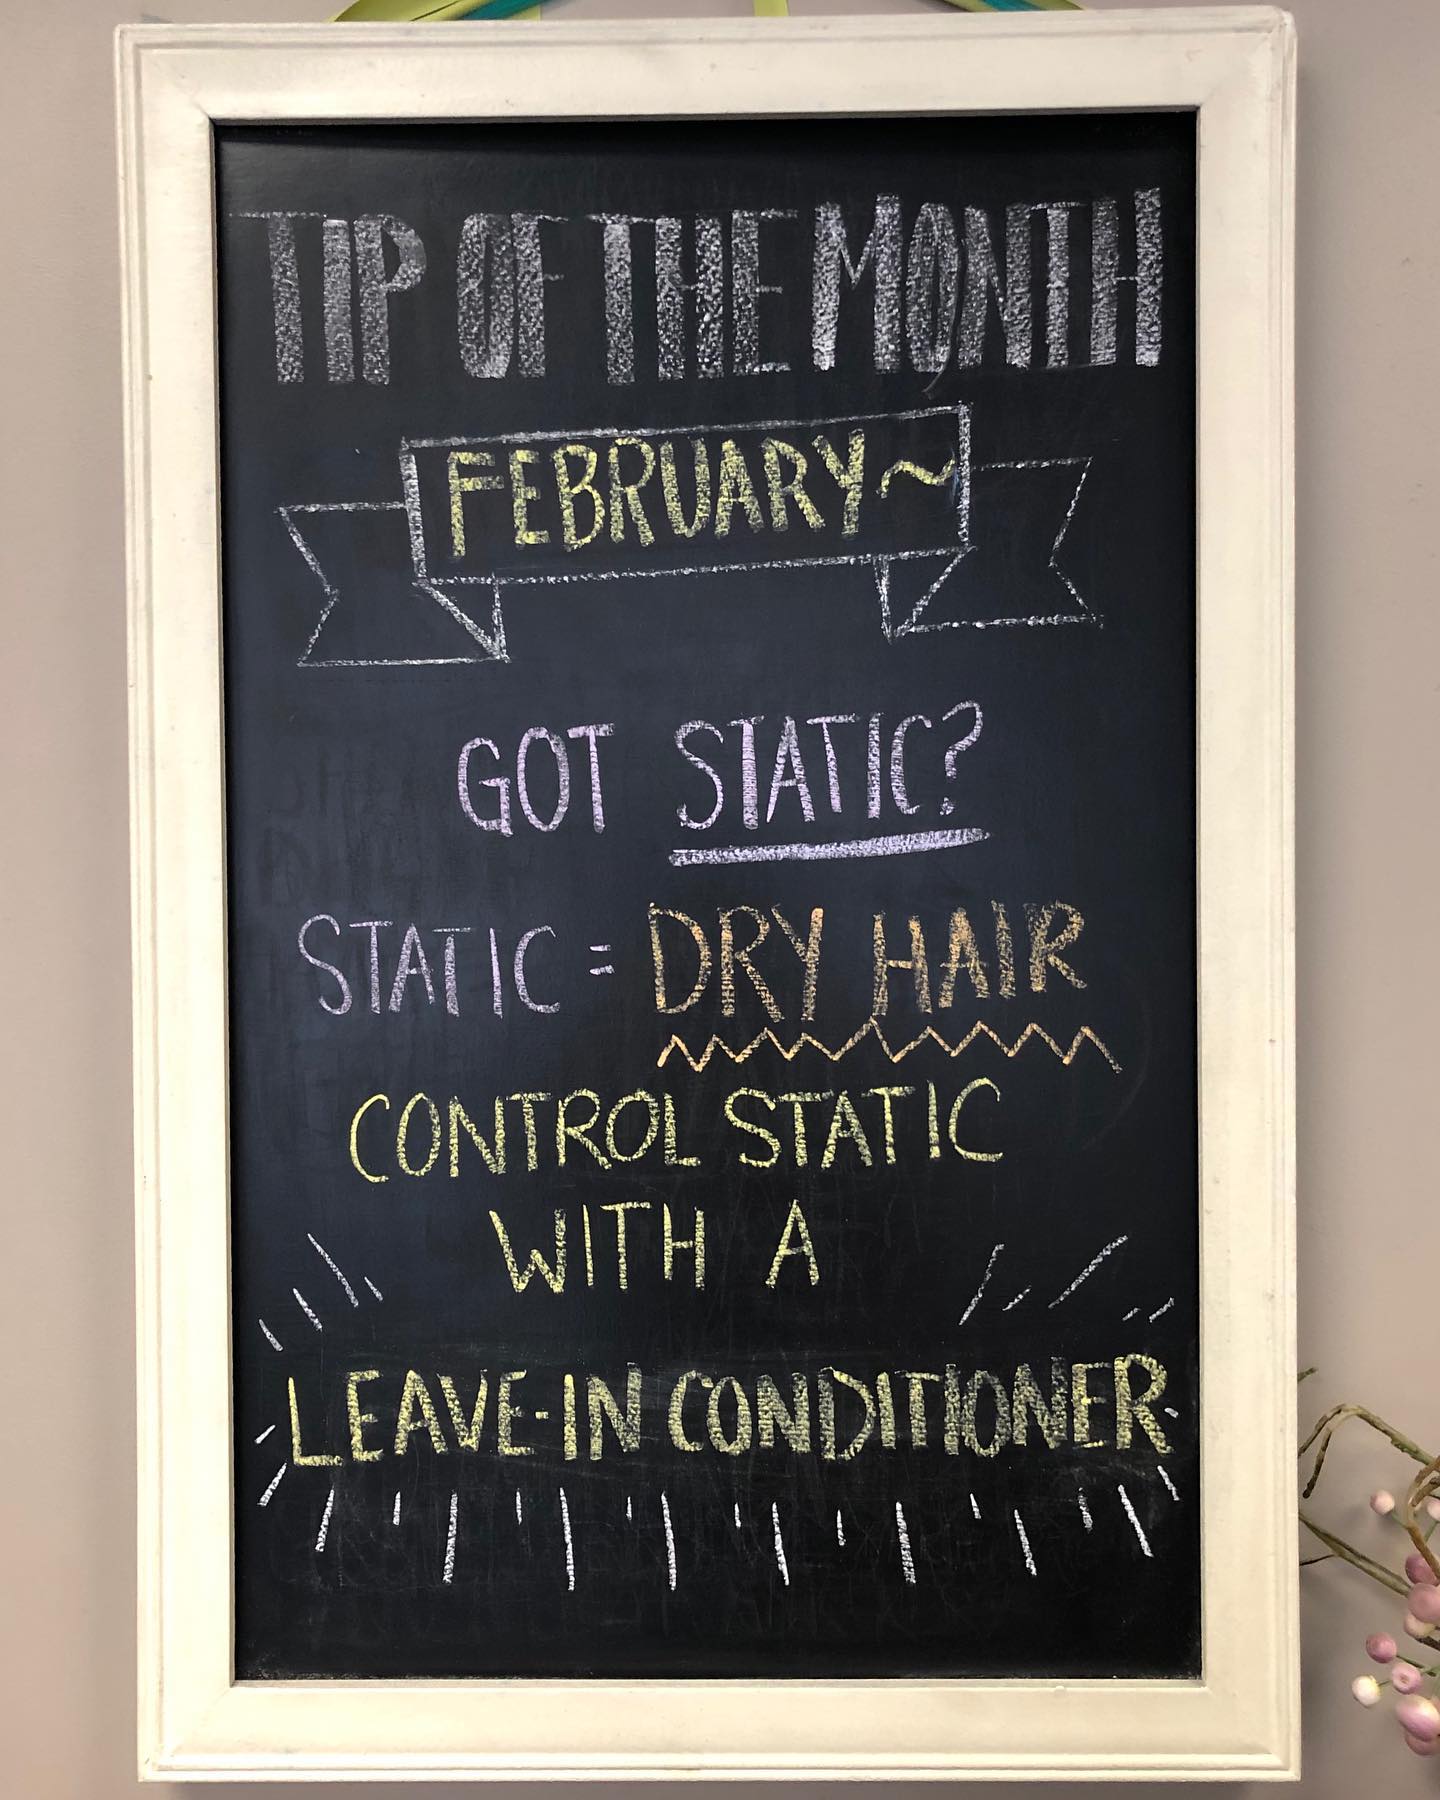 TIP OF THE MONTH
FEBRUARY~
GOT STATIC?
STATIC = DRY HAIR
CONTROL STATIC
WITH A
LEAVE-IN CONDITIONER